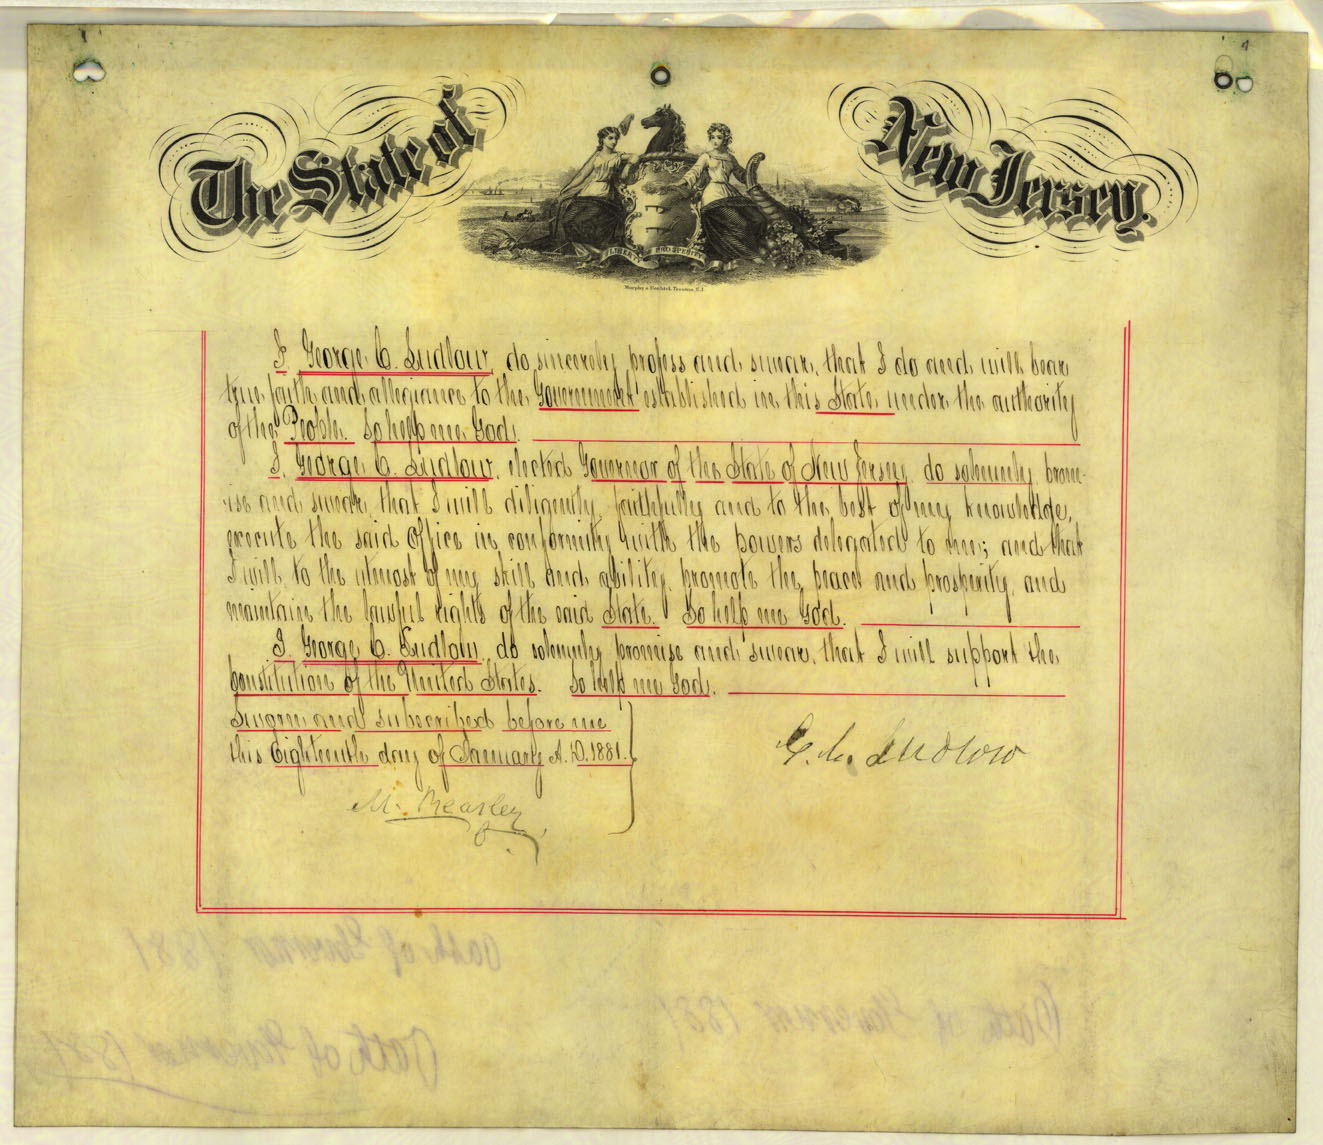 The State of New Jersey.
LIBERTY AND PROSPERITY
Murphy & Bechtel, Trenton, N.J.
I, George C. Ludlow, do sincerely profess and swear, that I do and will bear
true faith and allegiance to the Government established in this State under the authority
of the People. So help me God.
I, George C. Ludlow, elected Governor of the State of New Jersey, do solemnly prom-
ise and swear, that I will diligently, faithfully and to the best of my knowledge,
execute the said office in conformity with the powers delegated to me; and that
I will to the utmost of my skill and ability, promote the peace and prosperity, and
maintain the lawful rights of the said State. So help me God.
I, George C. Ludlow, do solemnly promise and swear, that I will support the
Constitution of the United States. So help me God.
Sworn and subscribed before me
this Eighteenth day of January A.D. 1881.
G. C. Ludlow
M. Beasley
Oath of Governor 1881
Oath of Governor 1881
Oath of Governor 1881